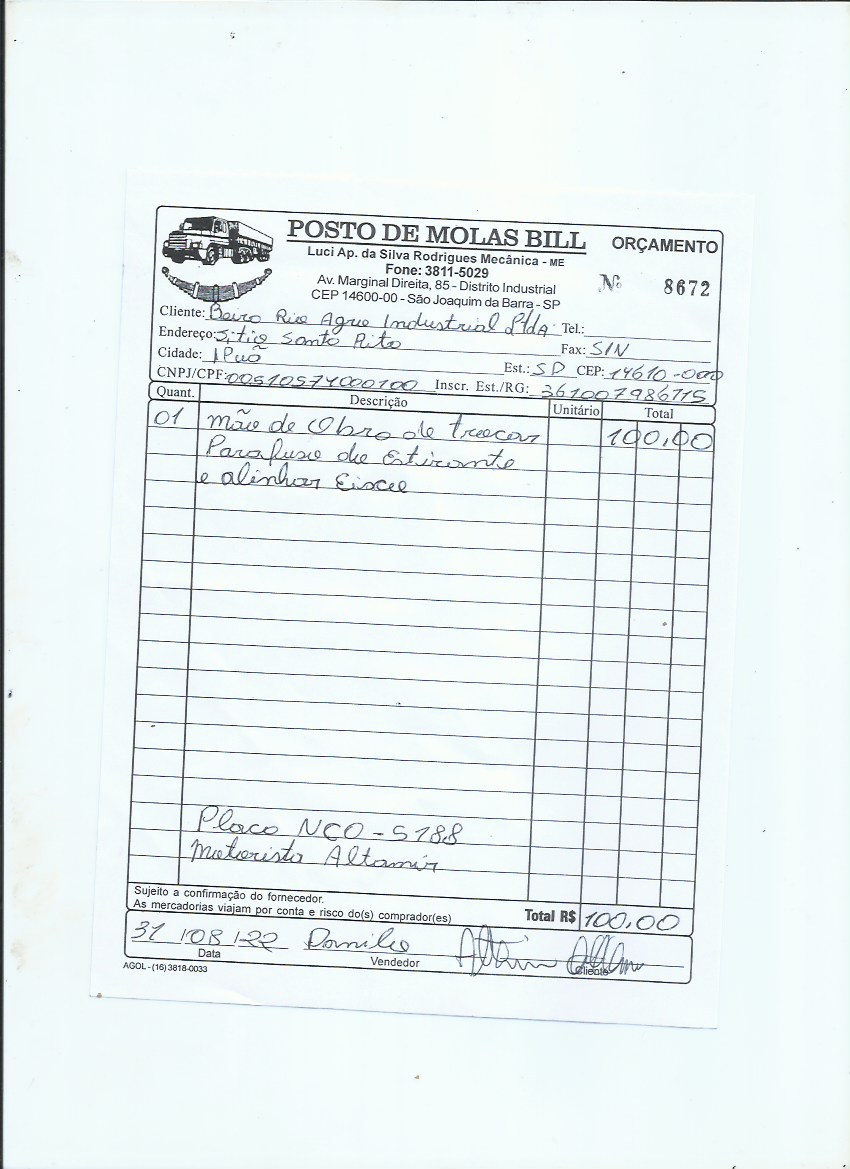 POSTO DE MOLAS BILL
ORÇAMENTO
Luci Ap. da Silva Rodrigues Mecânica - ME
Fone: 3811-5029
Av. Marginal Direita, 85 - Distrito Industrial
CEP 14600-00 - São Joaquim da Barra - SP
Nº 8672
Cliente: Beira Rio Agro Industrial Ltda Tel.:
Endereço: Sitio Santa Rita Fax: S/N
Cidade: IPuã Est.: SP CEP: 14610-000
CNPJ/CPF: 00510574000100 Inscr. Est./RG: 361007986115
Quant. Descrição Unitário Total
01 mão de Obra de trocar 100,00
Parafuso de Estirante
e alinhar Eixo
Placa NCO-5188
Motorista Altamir
Sujeito a confirmação do fornecedor.
As mercadorias viajam por conta e risco do(s) comprador(es)
Total R$ 100,00
31/08/22 Danilo
Data Vendedor Cliente
AGOL - (16) 3818-0033